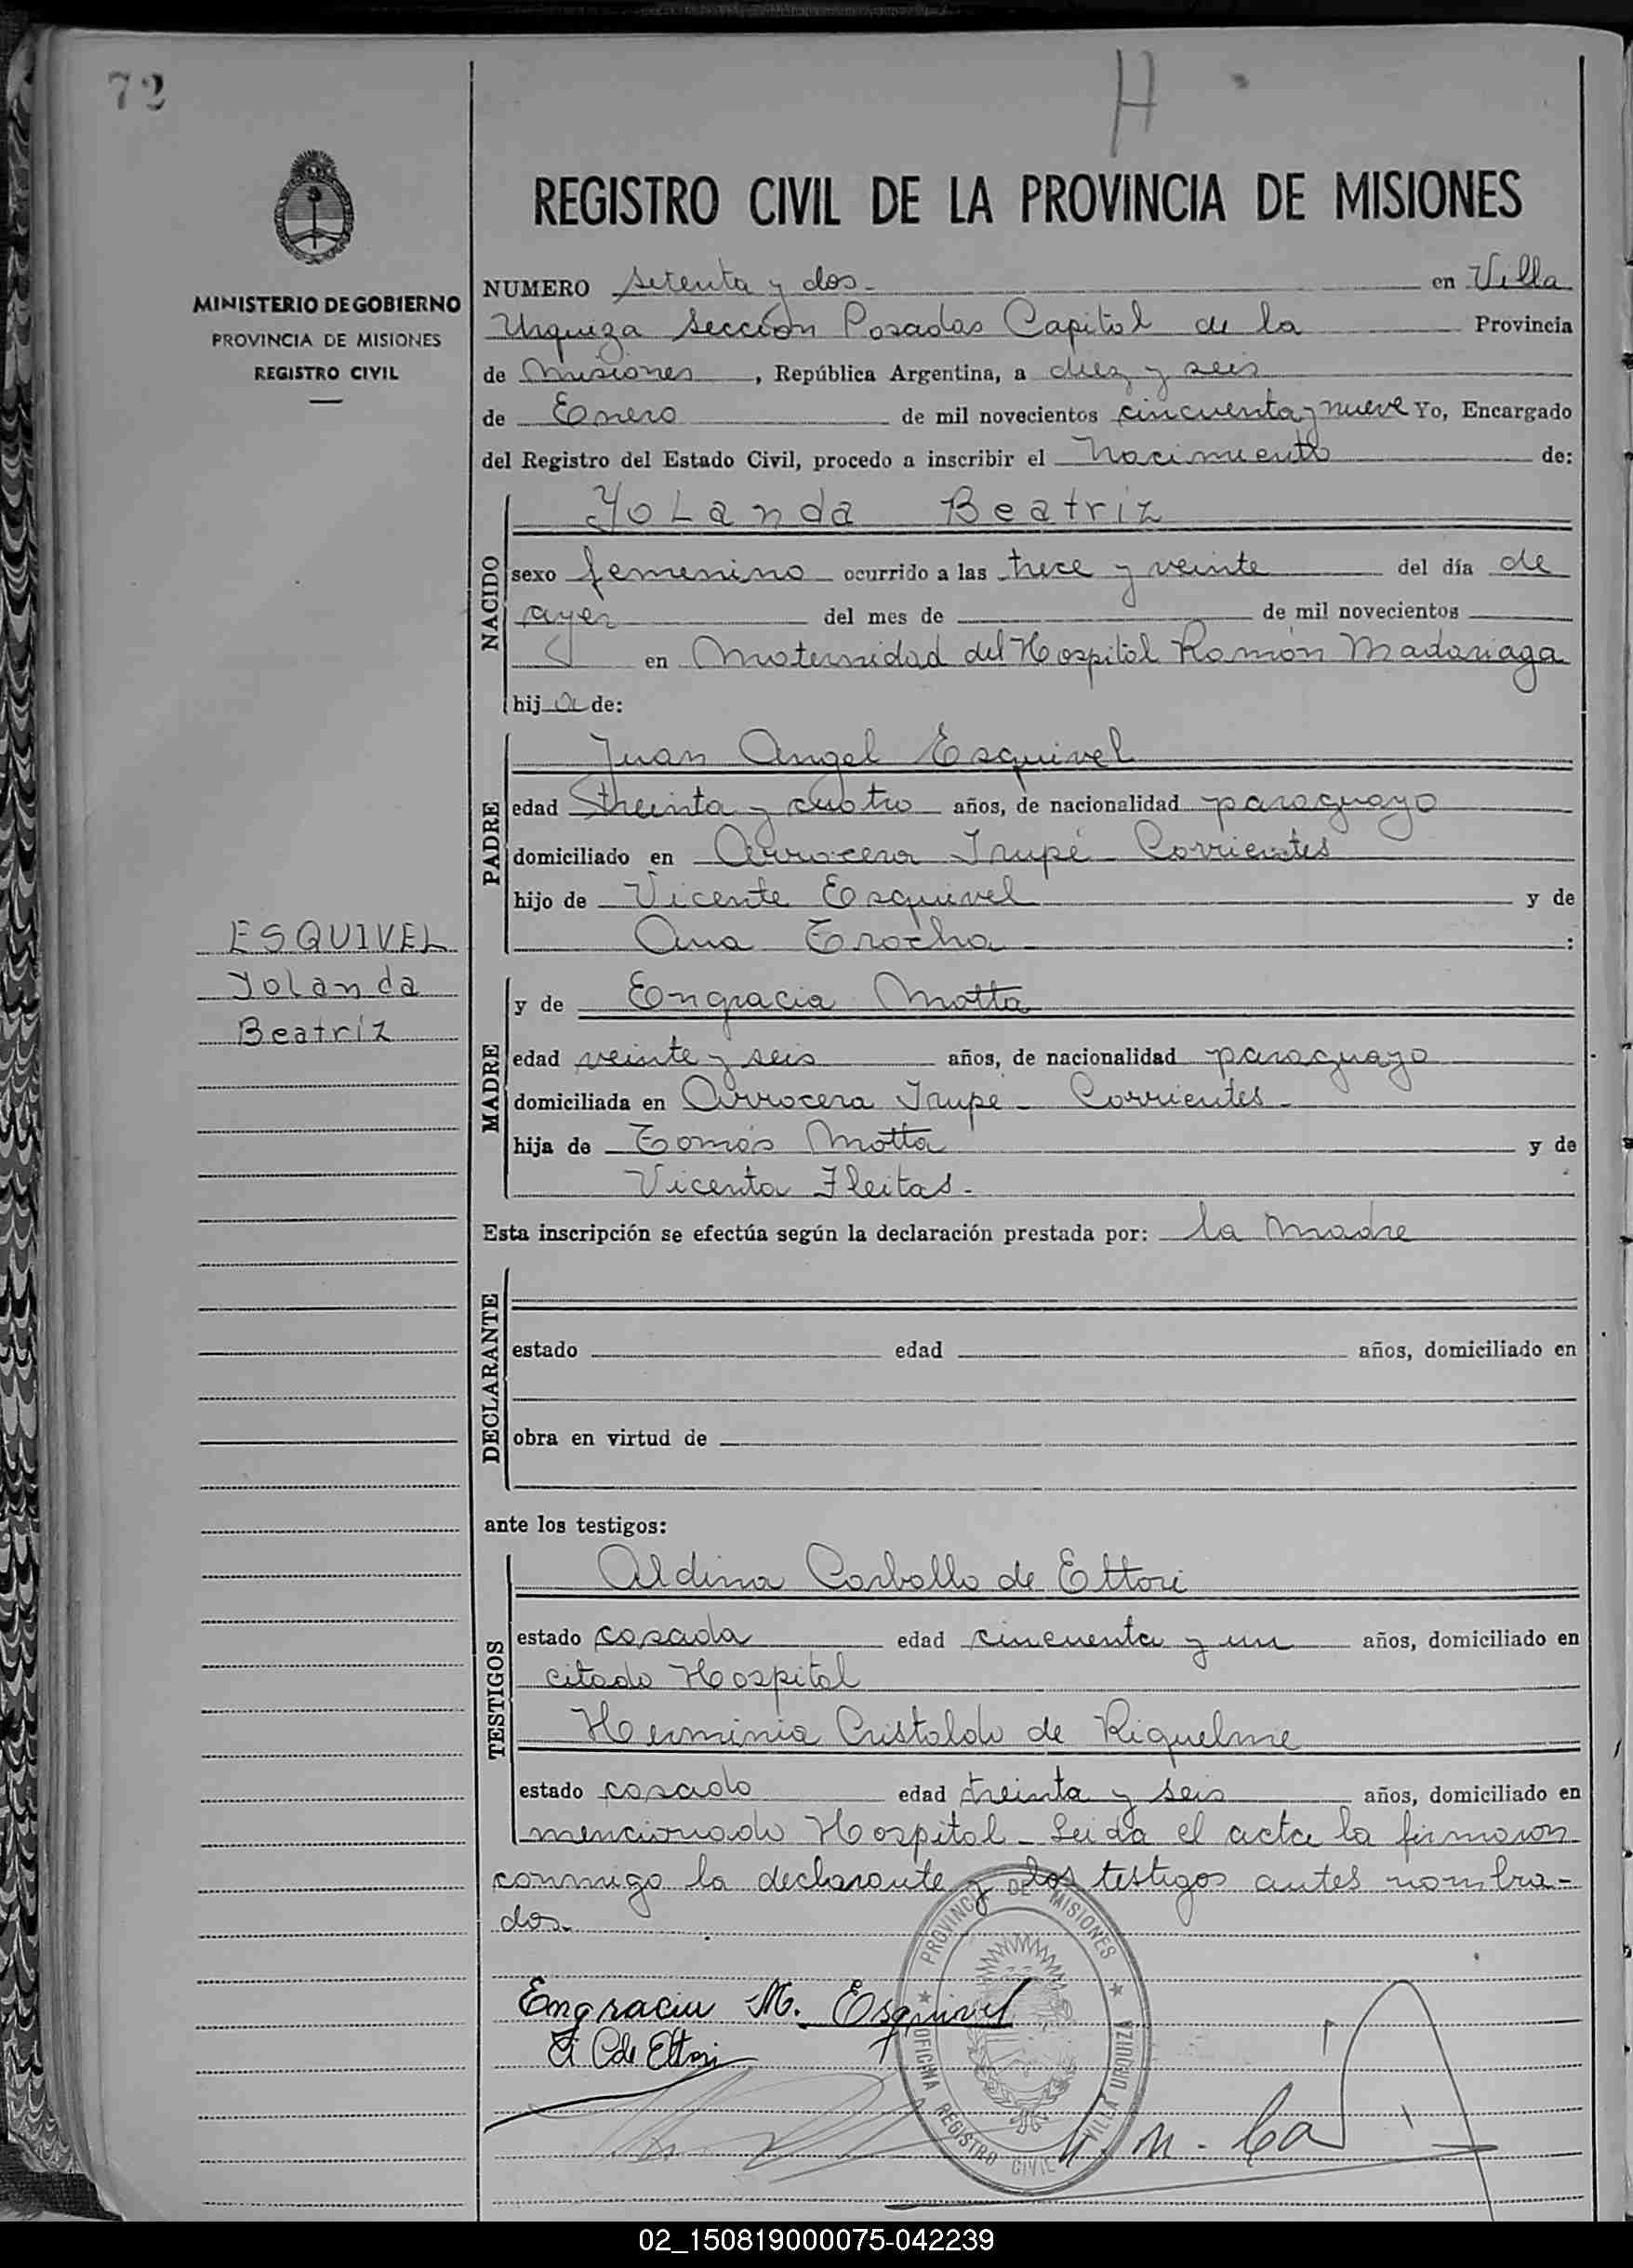 72
H
REGISTRO CIVIL DE LA PROVINCIA DE MISIONES
MINISTERIO DE GOBIERNO
PROVINCIA DE MISIONES
REGISTRO CIVIL
NUMERO Setenta y dos - en Villa
Urquiza Sección Posadas Capital de la Provincia
de Misiones, República Argentina, a diez y seis
de Enero de mil novecientos cincuenta y nueve Yo, Encargado
del Registro del Estado Civil, procedo a inscribir el Nacimiento de:
NACIDO
Yolanda Beatriz
sexo femenino ocurrido a las trece y veinte del día de
ayer del mes de de mil novecientos
en Maternidad del Hospital Ramón Madariaga
hija de:
PADRE
Juan Angel Esquivel
edad treinta y cuatro años, de nacionalidad paraguayo
domiciliado en Arrocera Irupé Corrientes
hijo de Vicente Esquivel y de
Ana Trocha :
ESQUIVEL
Yolanda
Beatríz
MADRE
y de Engracia Motta
edad veinte y seis años, de nacionalidad paraguayo
domiciliada en Arrocera Irupe - Corrientes -
hija de Tomás Motta y de
Vicenta Fleitas -
Esta inscripción se efectúa según la declaración prestada por: la madre
DECLARANTE
estado edad años, domiciliado en
obra en virtud de
ante los testigos:
TESTIGOS
Aldina Carballo de Ettori
estado casada edad cincuenta y un años, domiciliado en
citado Hospital
Herminia Cristaldo de Riquelme
estado casado edad treinta y seis años, domiciliado en
mencionado Hospital - Leida el acta la firmaron
conmigo la declarante y los testigos antes nombra-
dos -
PROVINCIA DE MISIONES
OFICINA REGISTRO CIVIL VILLA URQUIZA
Engracia M. Esquivel
C de Ettori
02_150819000075-042239